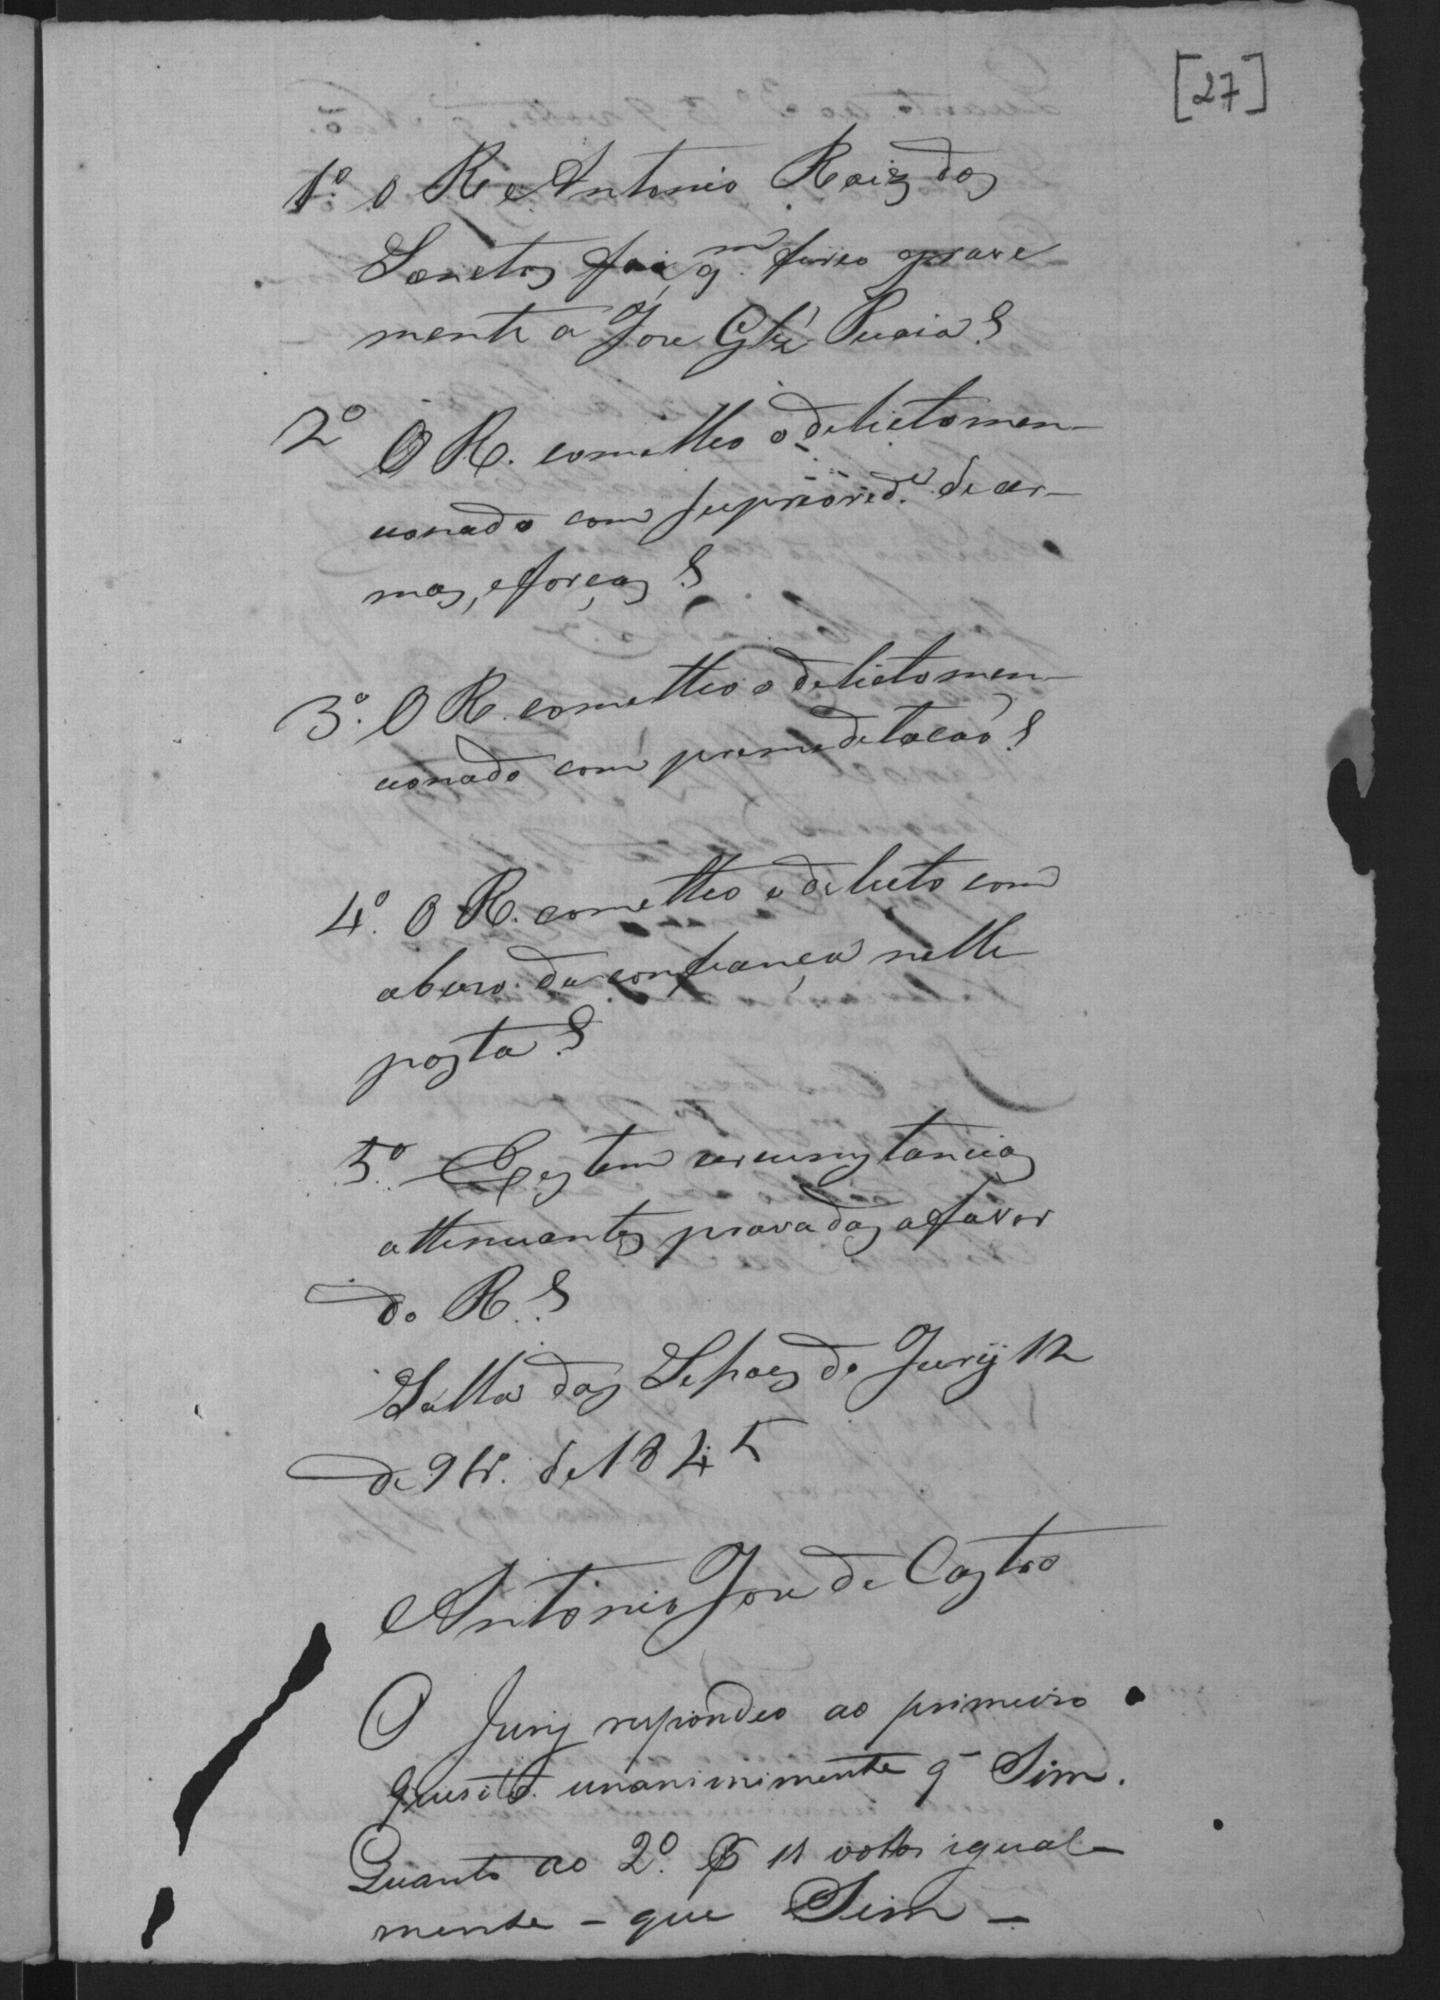 [27]
1º. O R. Antonio Roiz dos
Sanctos foi q.m ferio grave
mente a Joze Glz'
2º O R. cometteo o delictomen-
cionado com superiorid.e de ar-
mas, eforças?
3º. O R. cometteo o delictomen-
cionado com premeditacaõ?
4º. O R. cometteo o delicto com
abuso da confiança nelle
posta?
5º Exestem cercunstancias
attenuantes provadas afavor
do R.?
Salla das Sessoes do Jurij 12
de 9br.º de 1845
Antonio Joze de Castro
O Jurij respondeo ao primeiro
quesito unanimimente q̃ Sim.
Quanto ao 2º. 11 votos igual-
mente - que Sim -